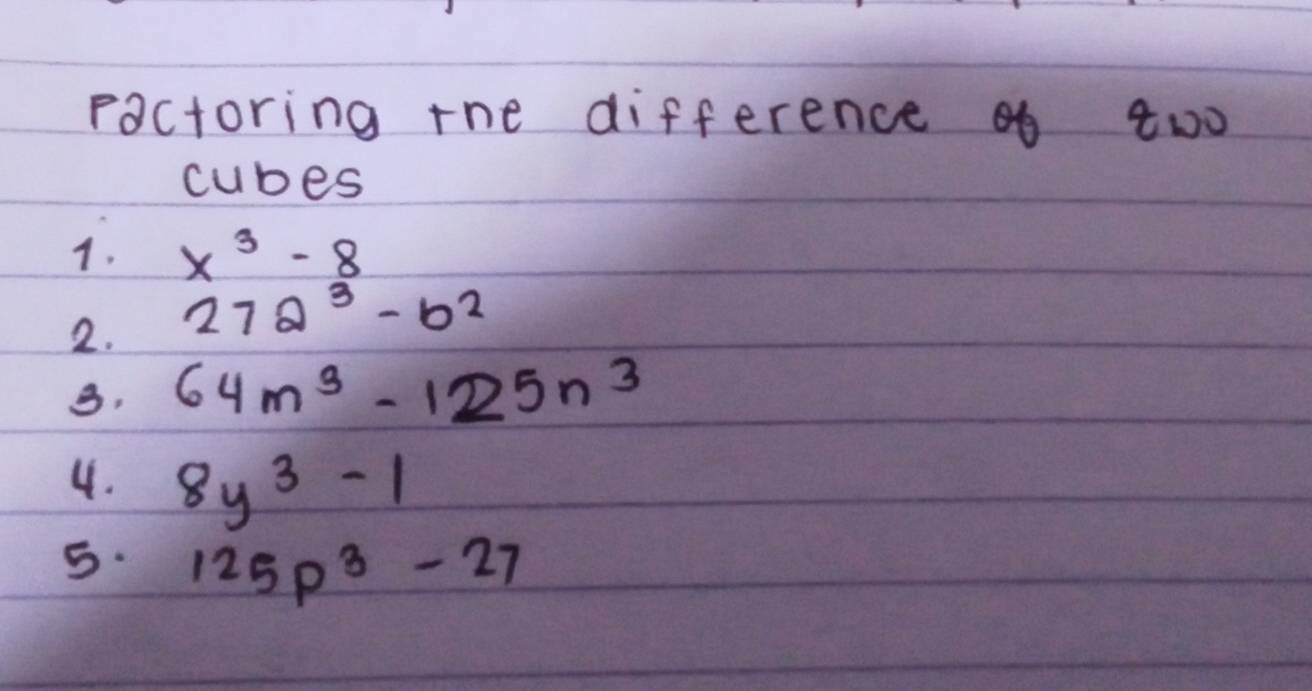 Factoring the difference of two
cubes
1. x³ - 8
2. 27a³ - b²
3. 64m³ - 125n³
4. 8y³ - 1
5. 125p³ - 27